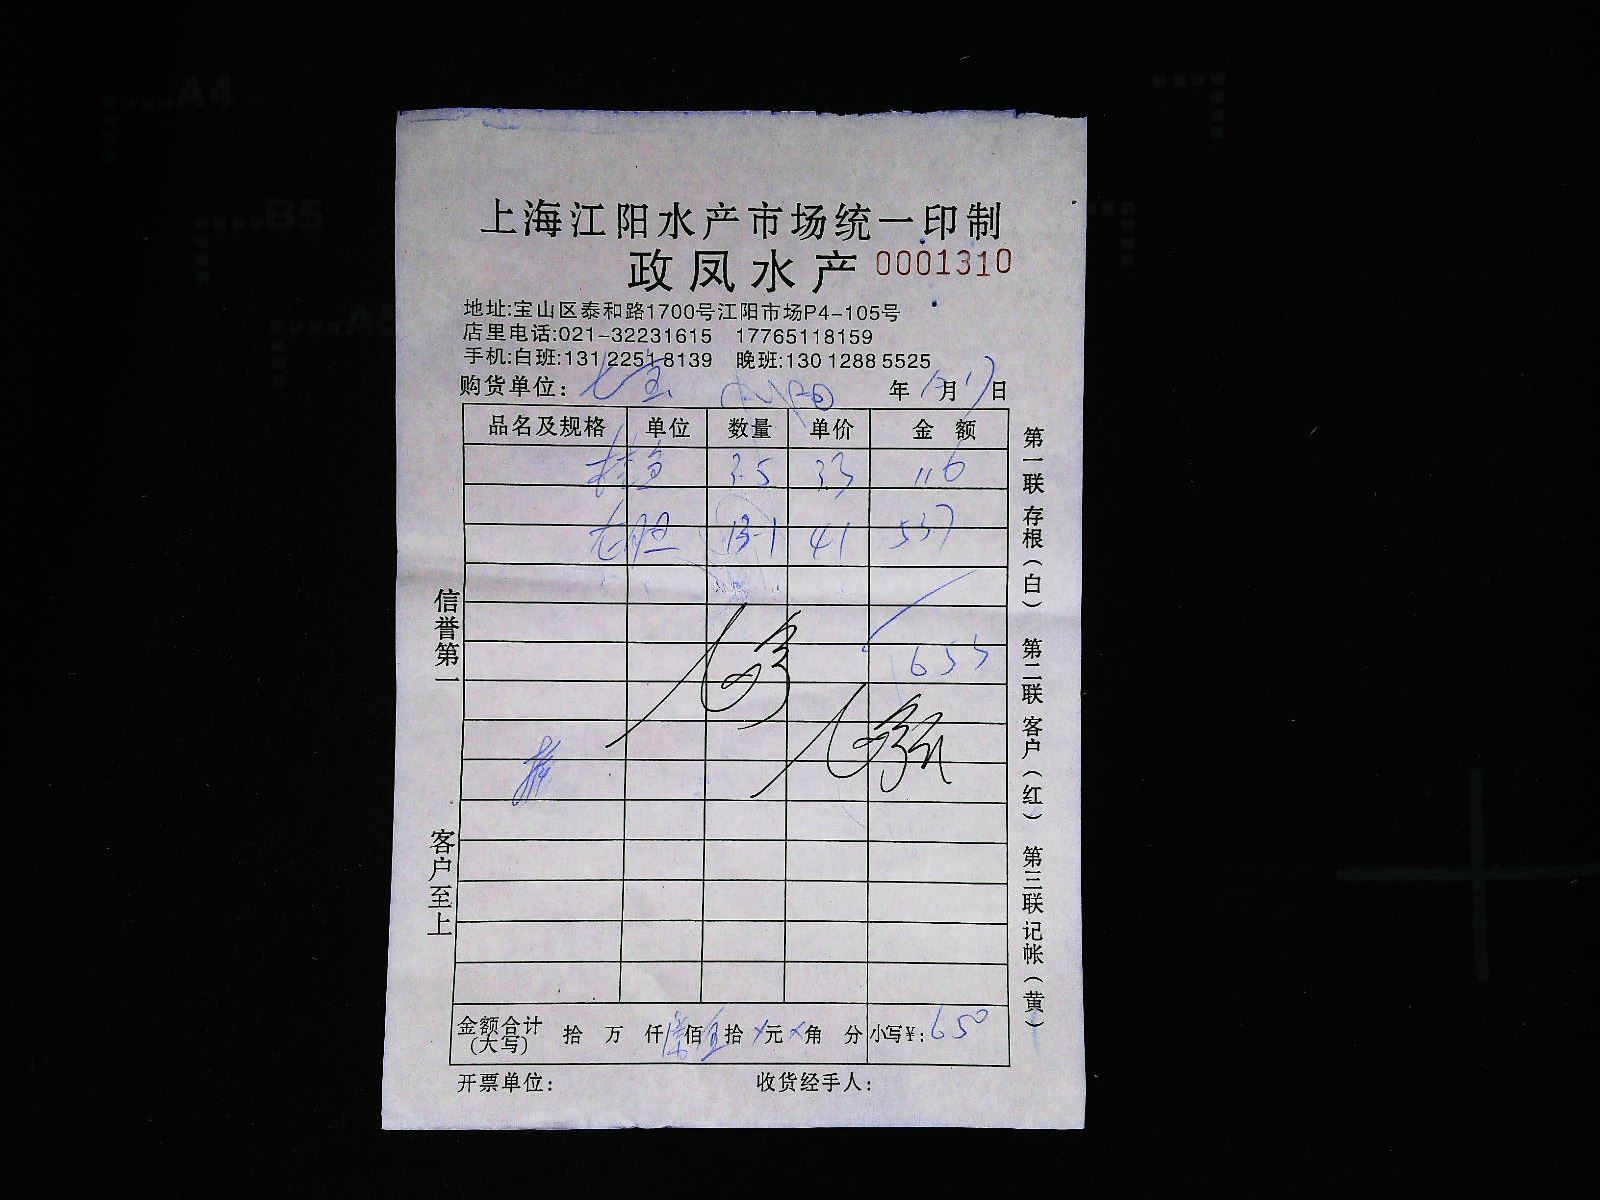 上海江阳水产市场统一印制
政凤水产 0001310
地址:宝山区泰和路1700号江阳市场P4-105号
店里电话:021-32231615 17765118159
手机:白班:131 2251 8139 晚班:130 1288 5525
购货单位: 七宝 年 月 17日
品名及规格 单位 数量 单价 金额
桂鱼 3.5 33 116
13.1 41 537
655
金额合计(大写) 拾 万 仟 佰 伍拾 元 角 分 小写¥: 650
开票单位: 收货经手人:
信誉第一 客户至上
第一联 存根(白) 第二联 客户(红) 第三联 记帐(黄)